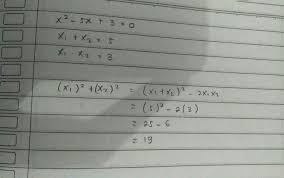 x² - 5x + 3 = 0
x₁ + x₂ = 5
x₁ . x₂ = 3
(x₁)² + (x₂)² = (x₁ + x₂)² - 2x₁x₂
= (5)² - 2(3)
= 25 - 6
= 19